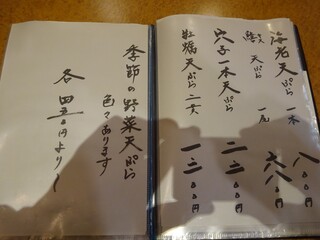 海老天ぷら 一本 八〇〇円
天ぷら 一尾 六八〇円
穴子一本天ぷら 二二〇〇円
牡蠣天ぷら 二ヶ 一二〇〇円
季節の野菜天ぷら
色々あります
各四五〇円より〜